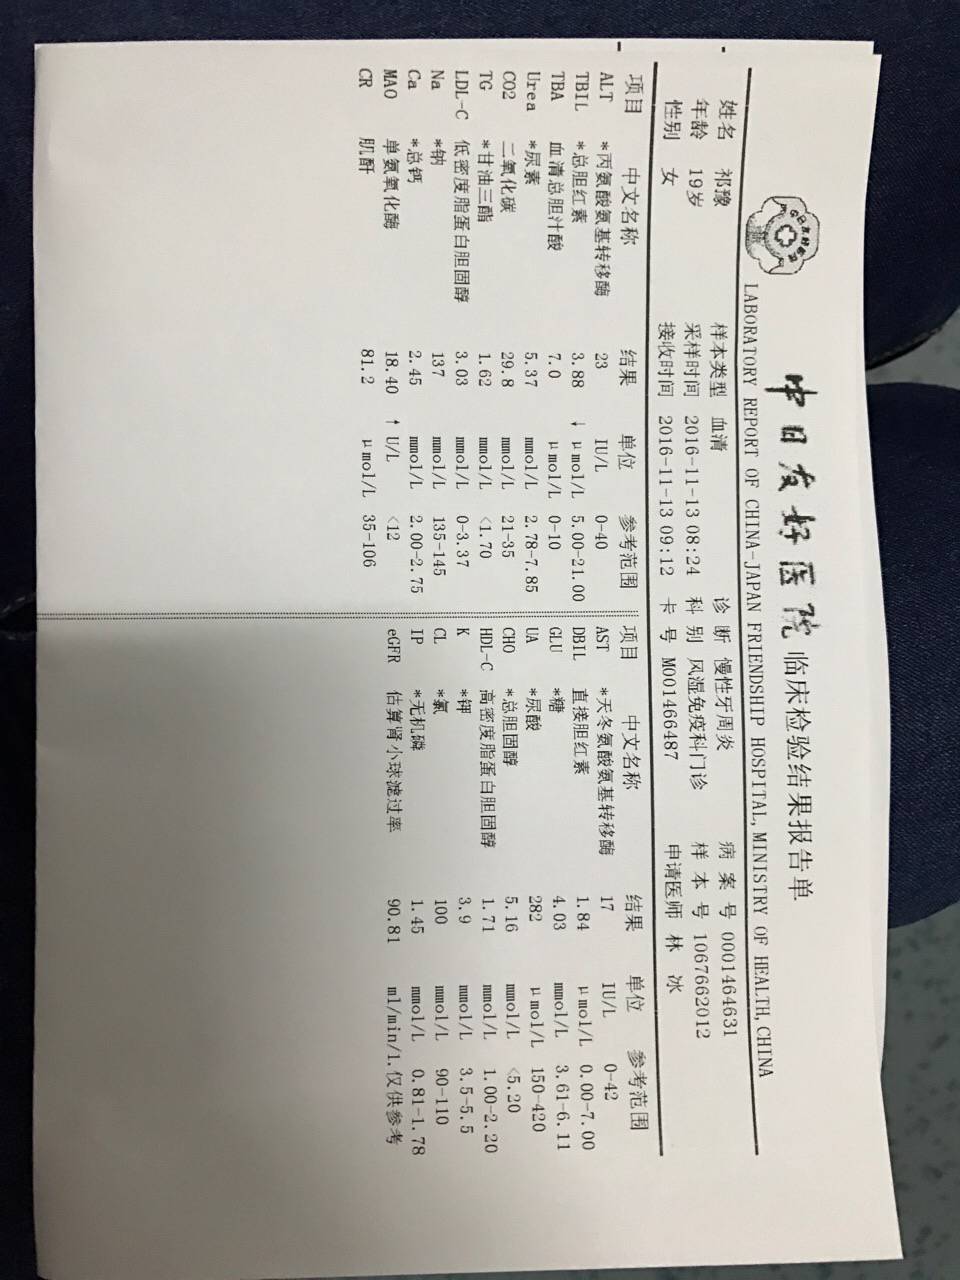 中日友好医院临床检验结果报告单
LABORATORY REPORT OF CHINA-JAPAN FRIENDSHIP HOSPITAL, MINISTRY OF HEALTH, CHINA
姓名 祁豫 样本类型 血清 诊 断 慢性牙周炎 病 案 号 0001464631
年龄 19岁 采样时间 2016-11-13 08:24 科 别 风湿免疫科门诊 样 本 号 1067662012
性别 女 接收时间 2016-11-13 09:12 卡 号 M001466487 申请医师 林 冰
项目 中文名称 结果 单位 参考范围 项目 中文名称 结果 单位 参考范围
ALT *丙氨酸氨基转移酶 23 IU/L 0-40 AST *天冬氨酸氨基转移酶 17 IU/L 0-42
TBIL *总胆红素 3.88 ↓ μmol/L 5.00-21.00 DBIL 直接胆红素 1.84 μmol/L 0.00-7.00
TBA 血清总胆汁酸 7.0 μmol/L 0-10 GLU *糖 4.03 mmol/L 3.61-6.11
Urea *尿素 5.37 mmol/L 2.78-7.85 UA *尿酸 282 μmol/L 150-420
CO2 二氧化碳 29.8 mmol/L 21-35 CHO *总胆固醇 5.16 mmol/L <5.20
TG *甘油三酯 1.62 mmol/L <1.70 HDL-C 高密度脂蛋白胆固醇 1.71 mmol/L 1.00-2.20
LDL-C 低密度脂蛋白胆固醇 3.03 mmol/L 0-3.37 K *钾 3.9 mmol/L 3.5-5.5
Na *钠 137 mmol/L 135-145 CL *氯 100 mmol/L 90-110
Ca *总钙 2.45 mmol/L 2.00-2.75 IP *无机磷 1.45 mmol/L 0.81-1.78
MAO 单氨氧化酶 18.40 ↑ U/L <12 eGFR 估算肾小球滤过率 90.81 ml/min/1.仅供参考
CR 肌酐 81.2 μmol/L 35-106